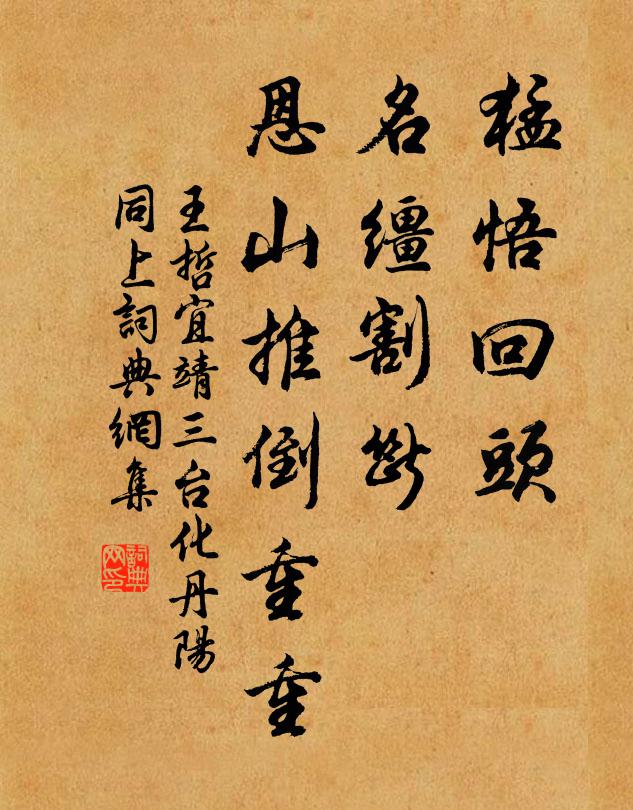 猛悟回頭
名繮割斷
恩山推倒重重
王哲宜靖三台化丹陽
同上詞典網集
詞典網印